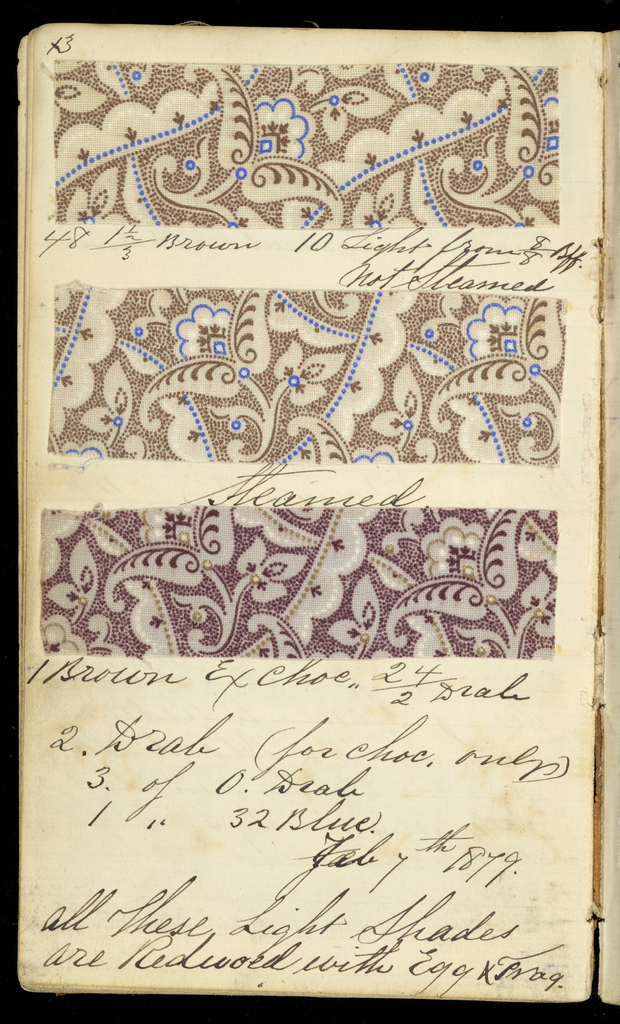 13
48 1½/3 Brown 10 Light from 8/8 Bff.
not Steamed
Steamed
1 Brown Ex Choc,, 24/2 Drab
2. Drab (for choc, only)
3. of 0. Drab
1 " 32 Blue.
Feb 7th 1879.
all These Light Shades
are Reduced with Egg & Trag.